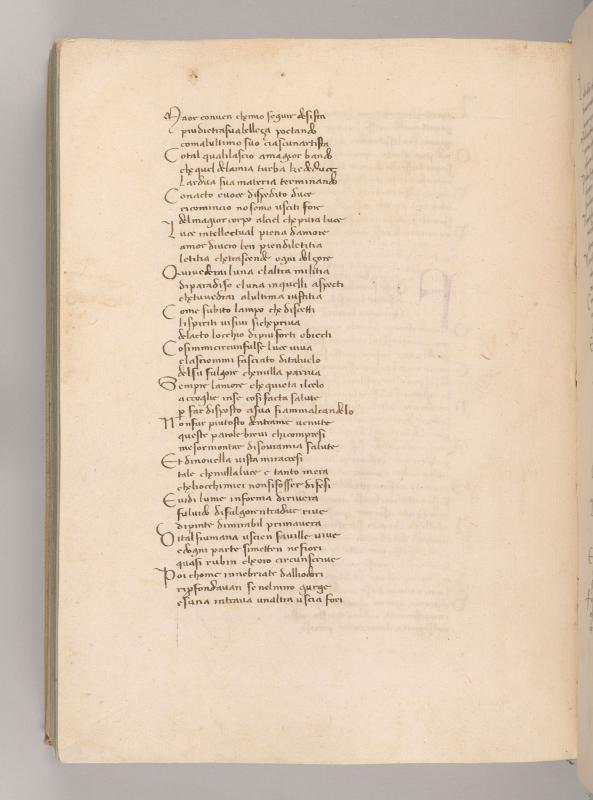 Maor conven chemio seguir desista
piudietrasuabelleça poetando
comalultimo suo ciascunartista
Cotal qualilascio amagior bando
che quel delamia turba
Lardua sua materia terminando
Conacto evoce dispedito duce
ricomincio noisemo usciti fore
delmagior corpo alciel chepura luce
Luce intellectual piena damore
amor divero ben piendiletitia
letitia chetrascende ogni dolçore
Quivederai luna elaltra militia
diparadiso eluna inquelli aspecti
chetuvedrai alultima iustitia
Come subito lampo che discetti
lispiriti visivi sichepriva
delacto lochio dipiu forti obiecti
Cosimmicircunfulse luce viva
elasciommi fasciato ditalvelo
delsu fulgore chenulla pariva
Sempre lamore che quieta ilcelo
accoglie inse cosi facta salute
p far disposto asua fiamma
Nonfur piutosto dentrame venute
queste parole brievi chicompresi
mesormontar disovramia
Et dinovella vista miraccesi
tale chenullaluce e tanto mera
cheliocchimiei nonsifosser difesi
Evidi lume informa dirivera
fulvido difulgorentradue rive
dipinte dimirabil primavera
Dital fiumana uscien faville vive
edogni parte simetten nefiori
quasi rubin cheoro circunscrive
Poi chome innebriate dalliodori
riprofondavan se nelmiro gurge
esuna intrava unaltra uscia fori